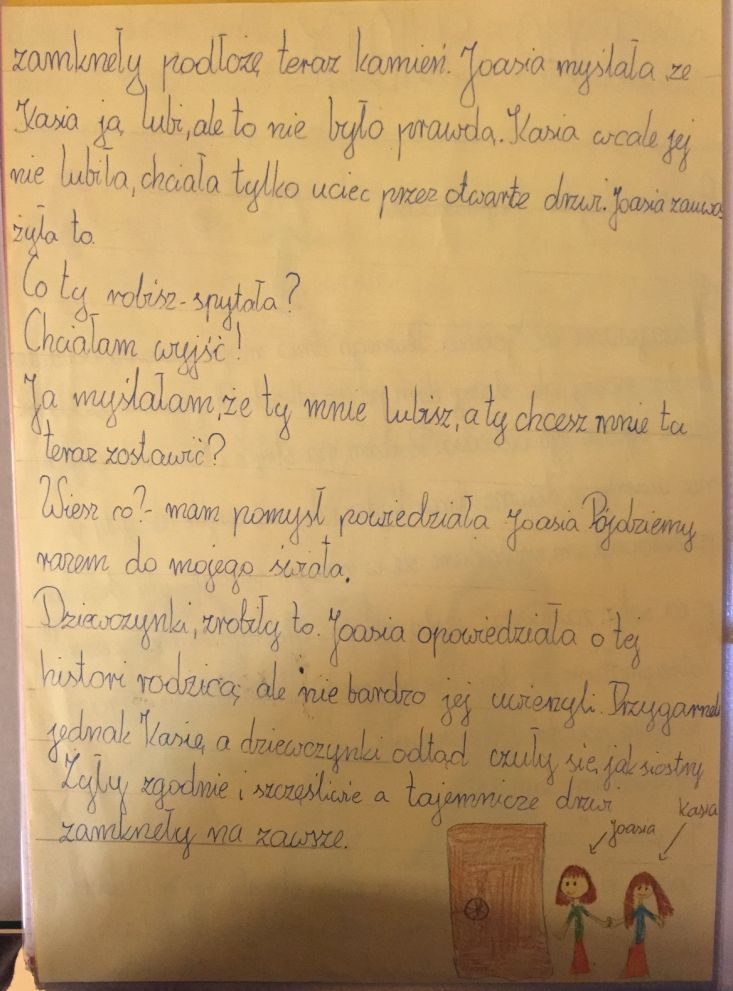 zamknęły podłożę teraz kamień. Joasia myślała że
Kasia ją lubi, ale to nie było prawdą. Kasia wcale jej
nie lubiła, chciała tylko uciec przez otwarte drzwi. Joasia zauwa
żyła to.
Co ty robisz - spytała?
Chciałam wyjść!
Ja myślałam, że ty mnie lubisz, a ty chcesz mnie tu
teraz zostawić?
Wiesz co? - mam pomysł powiedziała Joasia Pójdziemy
razem do mojego świata.
Dziewczynki, zrobiły to. Joasia opowiedziała o tej
histori rodzicą, ale nie bardzo jej uwierzyli. Przygarneli
jednak Kasię, a dziewczynki odtąd czuły się, jak siostry
Żyły zgodnie i szczęśliwie a tajemnicze drzwi
zamknęły na zawsze.
Joasia
Kasia